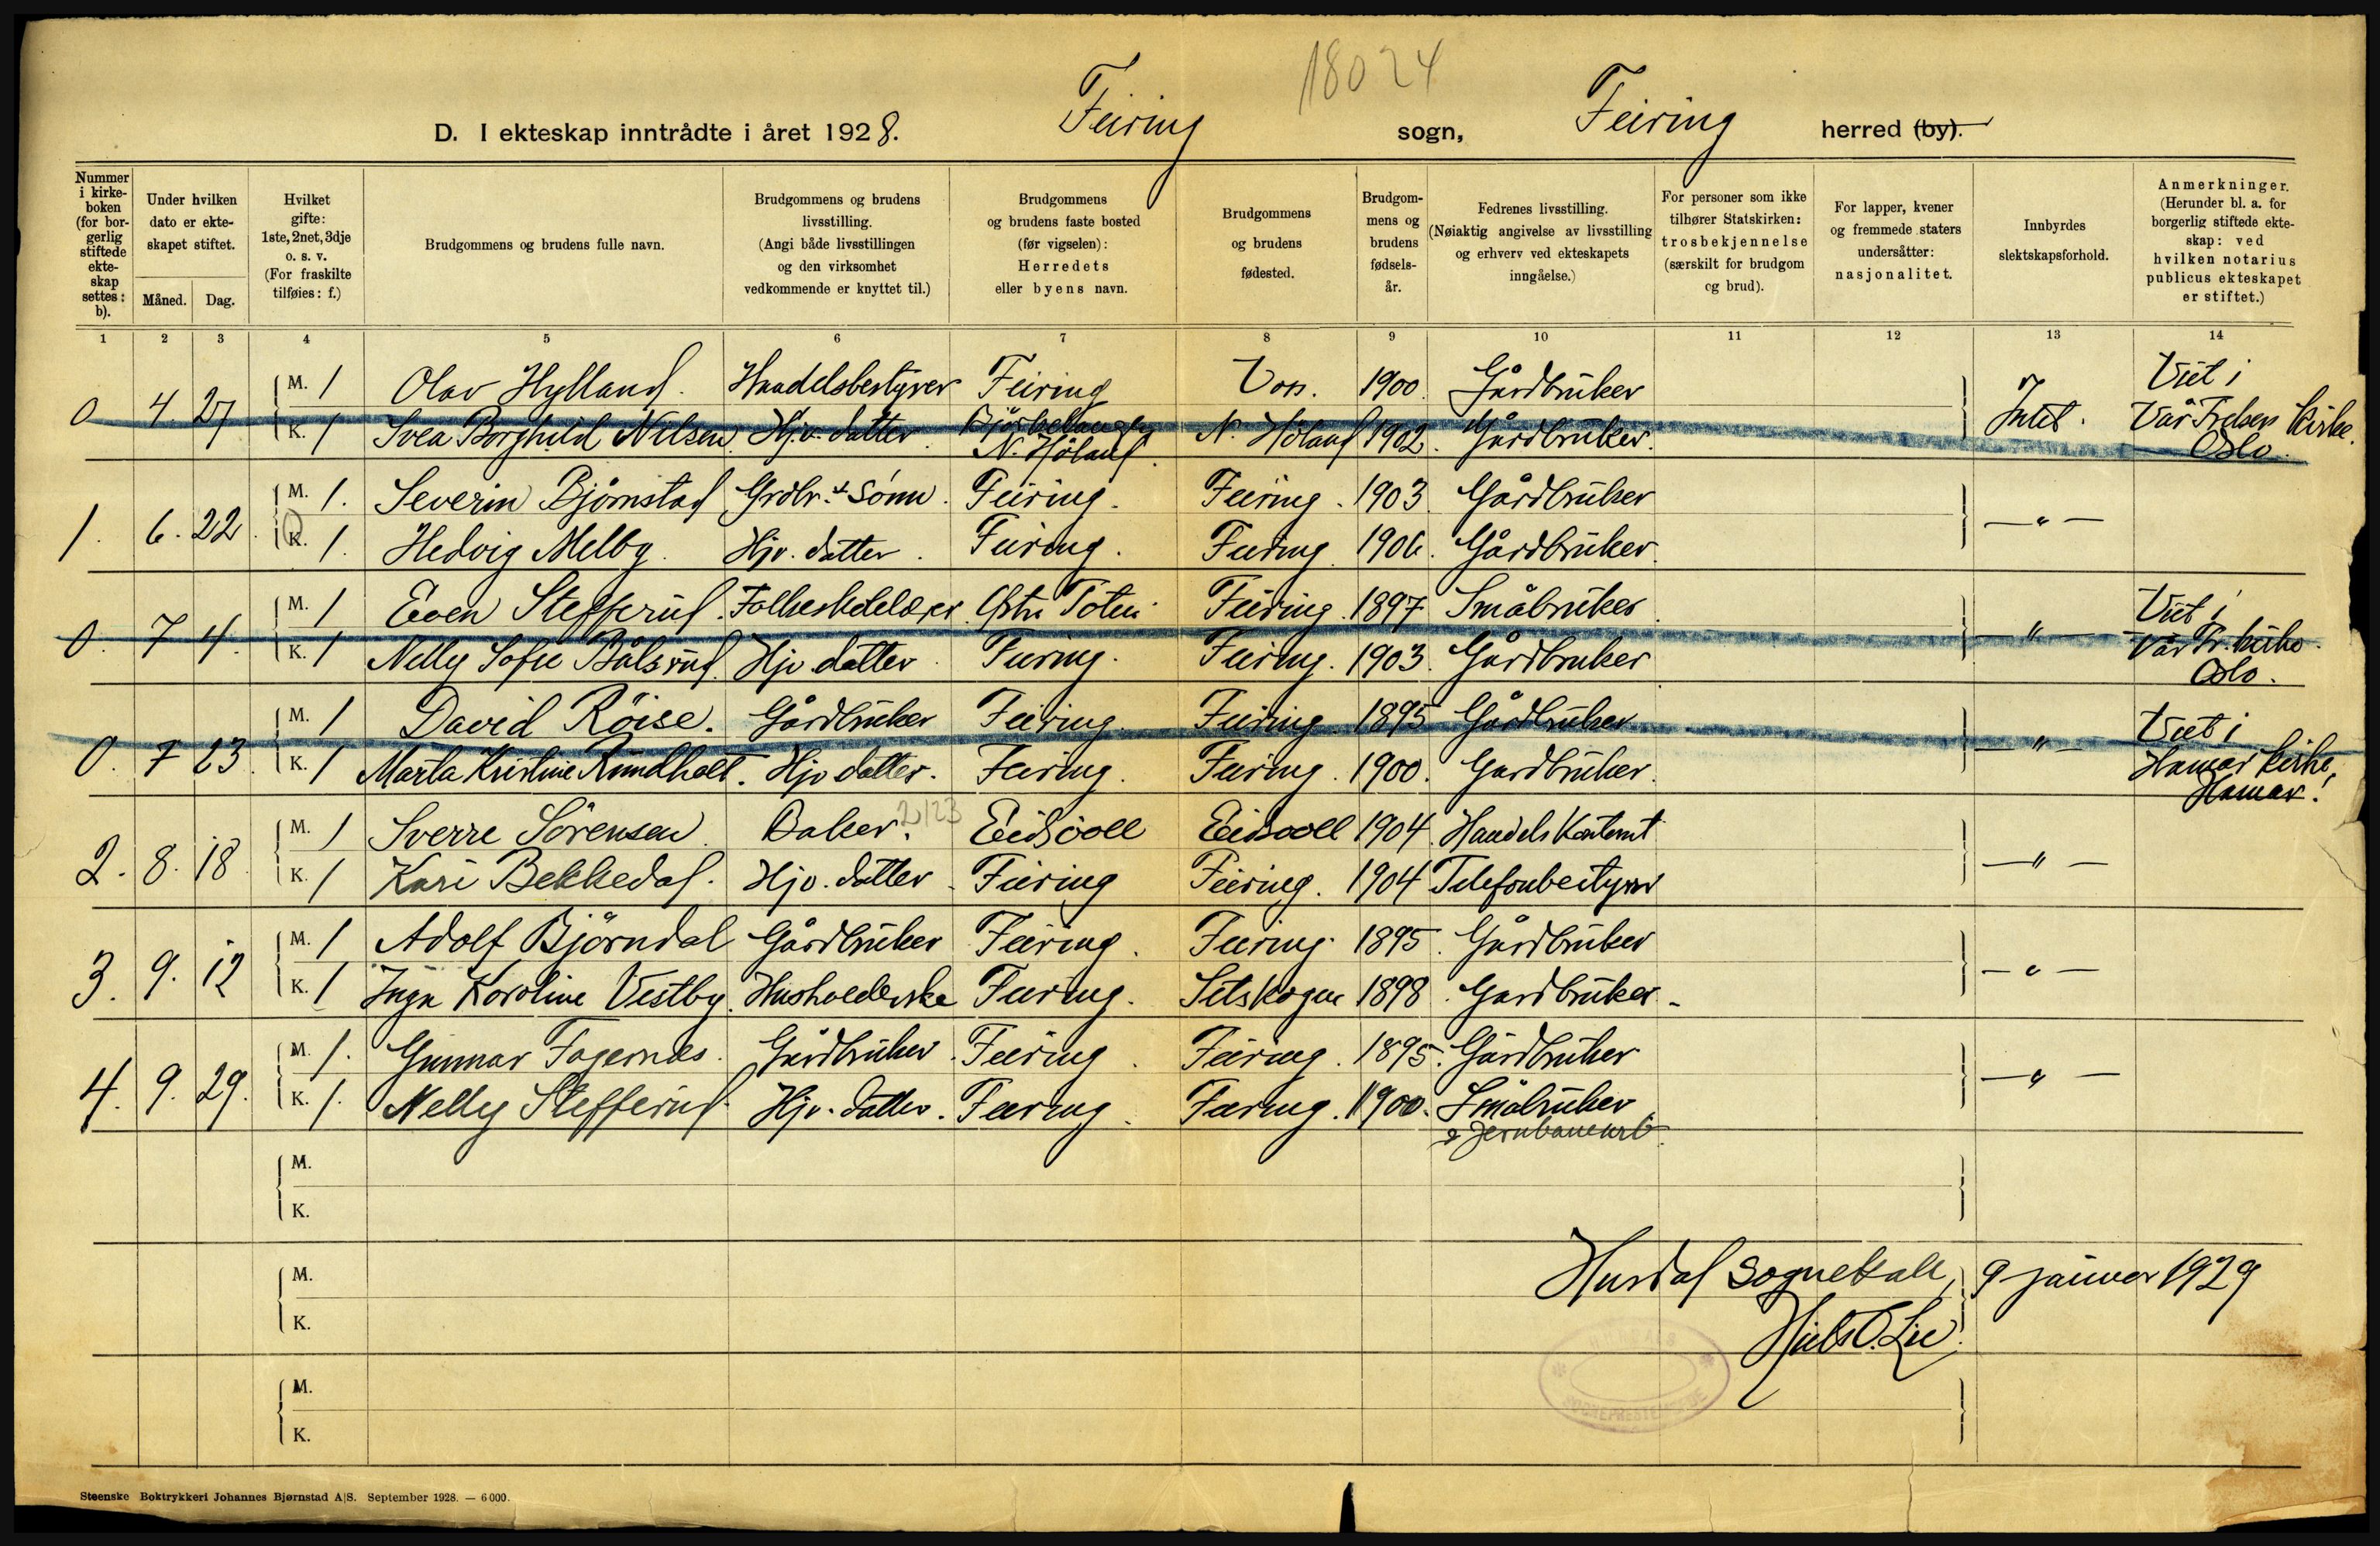 18024
D. I ekteskap inntrådte i året 1928. Feiring sogn, Feiring herred (by).
Nummer i kirkeboken (for borgerlig stiftede ekteskap settes: b).
Under hvilken dato er ekteskapet stiftet.
Måned. Dag.
Hvilket gifte: 1ste, 2net, 3dje o. s. v. (For fraskilte tilføies: f.)
Brudgommens og brudens fulle navn.
Brudgommens og brudens livsstilling. (Angi både livsstillingen og den virksomhet vedkommende er knyttet til.)
Brudgommens og brudens faste bosted (før vigselen): Herredets eller byens navn.
Brudgommens og brudens fødested.
Brudgommens og brudens fødsels-år.
Fedrenes livsstilling. (Nøiaktig angivelse av livsstilling og erhverv ved ekteskapets inngåelse.)
For personer som ikke tilhører Statskirken: trosbekjennelse (særskilt for brudgom og brud).
For lapper, kvener og fremmede staters undersåtter: nasjonalitet.
Innbyrdes slektskapsforhold.
Anmerkninger. (Herunder bl. a. for borgerlig stiftede ekteskap: ved hvilken notarius publicus ekteskapet er stiftet.)
1 2 3 4 5 6 7 8 9 10 11 12 13 14
0 4. 27 M. 1 Olav Hylland. Handelsbestyrer Feiring Voss. 1900. Gårdbruker Intet. Viet i Vår Frelsers Kirke. Oslo.
K. 1 Svea Borghild Nilsen. Hjv. datter. N. Höland. N. Höland 1902. Gårdbruker.
1. 6. 22. M. 1. Severin Bjørnstad Grdbr. & Sønn. Feiring. Feiring. 1903. Gårdbruker —"—
K. 1. Hedvig Melby. Hjv. datter. Feiring. Feiring. 1906. Gårdbruker.
0. 7 4. M. 1 Even Stefferud. Folkeskolelærer. Østre Toten. Feiring. 1897. Småbruker. —"— Viet i Vår Fr. kirke. Oslo.
K. 1 Nelly Sofie Bålsrud. Hjv datter. Feiring. Feiring. 1903. Gårdbruker
0. 7 23. M. 1 David Röise. Gårdbruker Feiring. Feiring. 1895 Gårdbruker —"— Viet i Hamar kirke, Hamar.
K. 1 Marta Kristine Rundholt. Hjv datter. Feiring. Feiring. 1900. Gardbruker.
2. 8. 18. M. 1 Sverre Sörensen. Baker. 2/23 Eidsvoll Eidsvoll 1904. —"—
K. 1 Kari Bekkedal. Hjv. datter. Feiring Feiring. 1904 Telefonbestyrer
3. 9. 12 M. 1 Adolf Björndal Gårdbruker Feiring. Feiring. 1895. Gårdbruker —"—
K. 1 Inga Karoline Vestby. Husholderske Feiring. Setskogen 1898. Gardbruker.
4. 9. 29. M. 1. Gunnar Fagernes. Gårdbruker. Feiring. Feiring. 1895. Gårdbruker —"—
K. 1. Nelly Stefferud. Hjv. datter. Feiring. Feiring. 1900. Småbruker & Jernbanearb.
M.
K.
M.
K.
Hurdal sognekall, 9 januar 1929
M.
K.
Steenske Boktrykkeri Johannes Bjørnstad A|S. September 1928. — 6000.